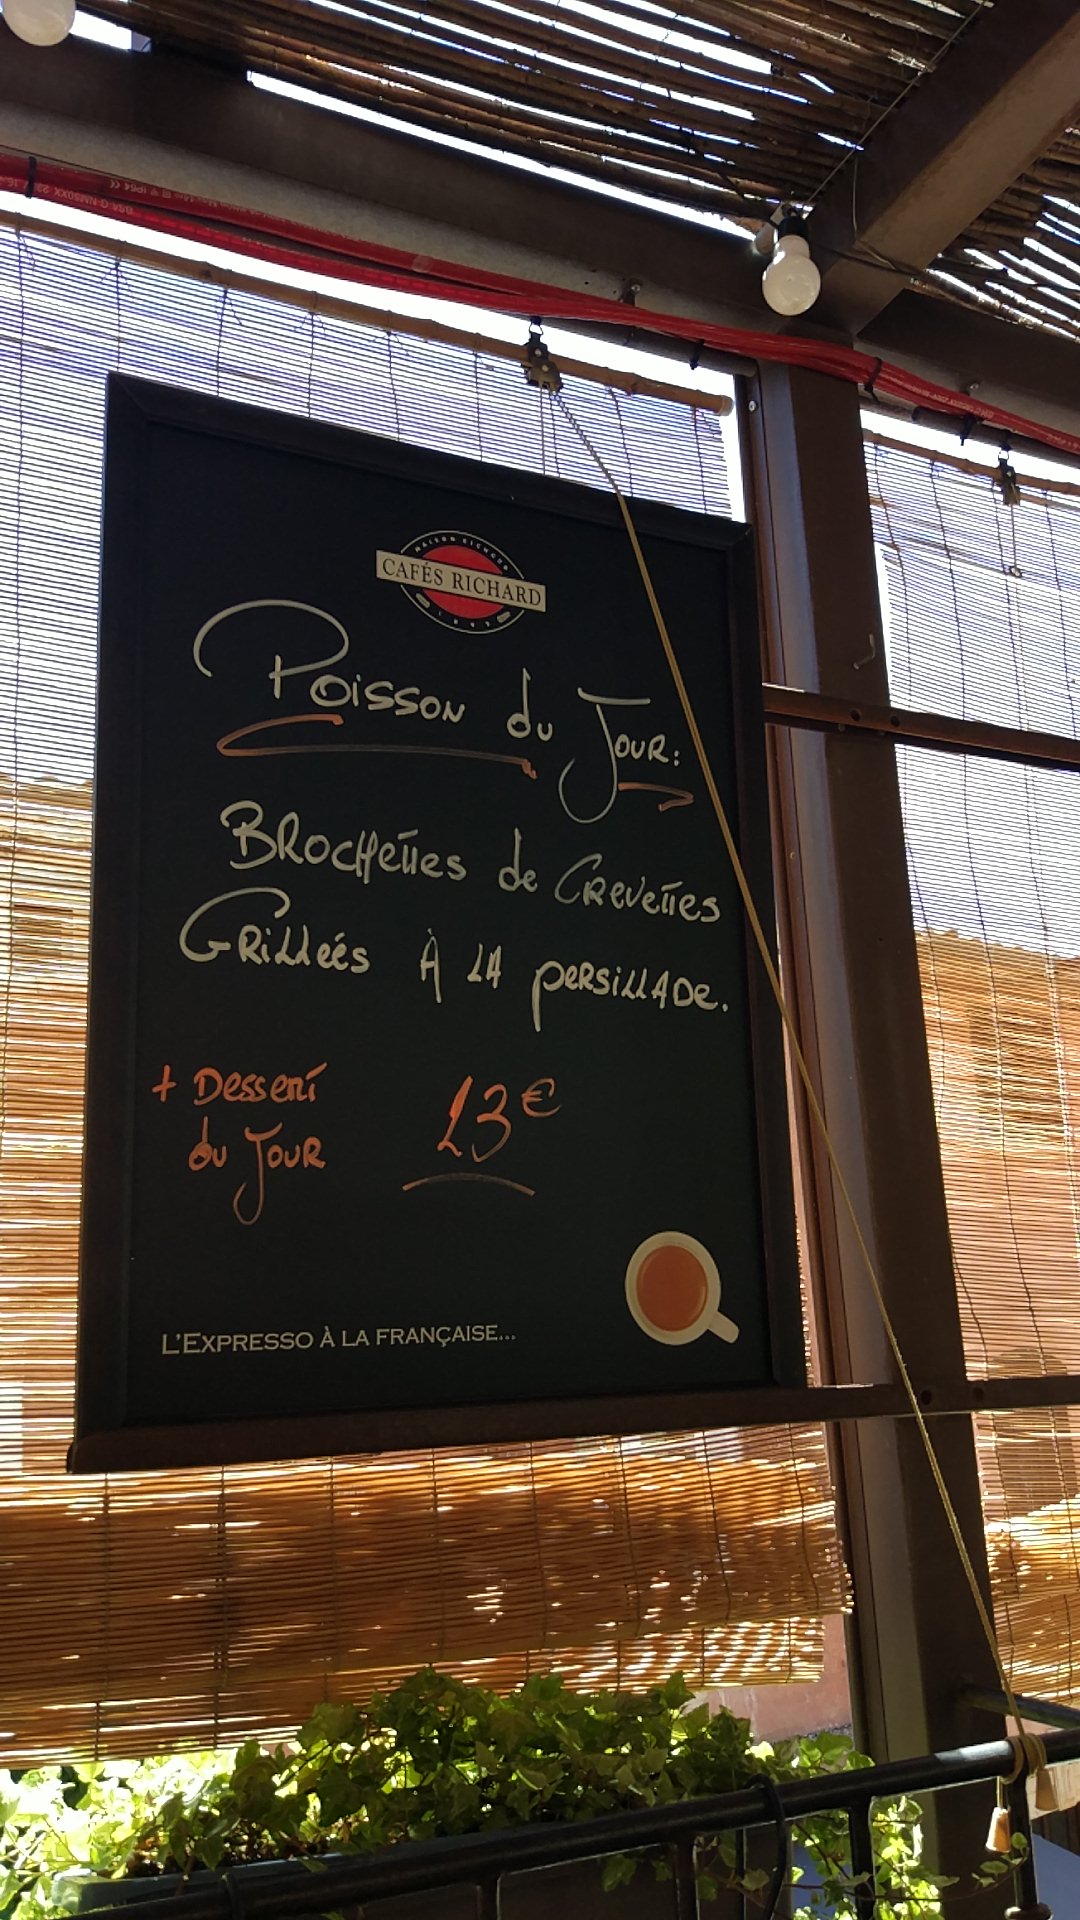 CAFÉS RICHARD
Poisson du Jour:
Brochettes de Crevettes
Grilleés À la persillade.
+ Dessert
du Jour
13€
L'EXPRESSO À LA FRANÇAISE...